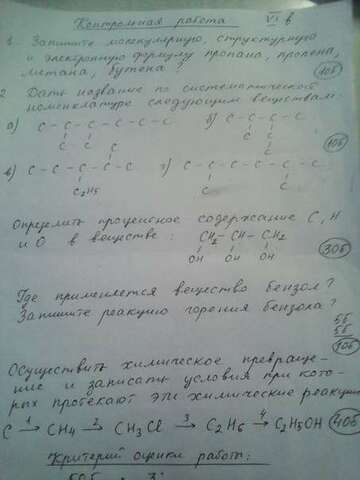 Контрольная работа VI в
1. Запишите молекулярную, структурную
и электронную формулу пропана, пропена,
метана, бутена? 10б
2. Дать название по систематической
номенклатуре следующим веществам:
а) C – C – C – C – C – C б) C – C – C – C – C
C C C
C C 10б
в) C – C – C – C – C г) C – C – C – C – C – C
C₂H₅ C C
C
Определить процентное содержание C, H
и O в веществе: CH₂ – CH – CH₂
OH OH OH 30б
Где применяется вещество бензол?
Запишите реакцию горения бензола? 5б
5б
10б
Осуществить химическое превраще-
ние и записать условия при кото-
рых протекают эти химические реакции
C 1→ CH₄ 2→ CH₃Cl 3→ C₂H₆ 4→ C₂H₅OH 40б
Критерий оценки работы: